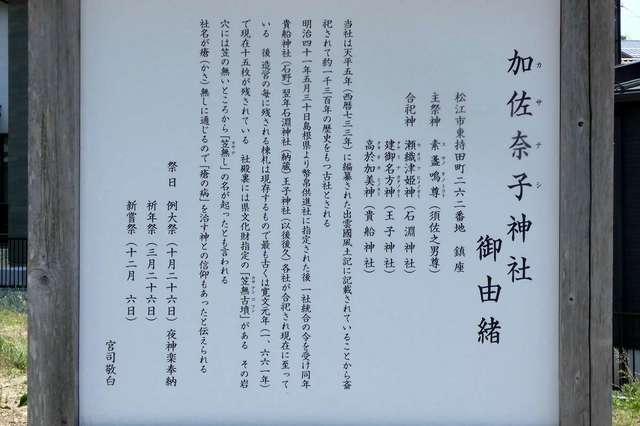 加佐奈子神社
カサナシ
御由緒
松江市東持田町二六二番地 鎮座
主祭神 素盞嗚尊（須佐之男尊）
合祀神 瀬織津姫神（石淵神社）
建御名方神（王子神社）
高於加美神（貴船神社）
当社は天平五年（西暦七三三年）に編纂された出雲國風土記に記載されていることから斎
祀されて約一千三百年の歴史をもつ古社とされる
明治四十一年五月三十日島根県より幣帛供進社に指定された後 一社統合の令を受け同年
貴船神社（石野）翌年石淵神社（納蔵）王子神社（以後後久）各社が合祀され現在に至って
いる 後 造営の毎に残される棟札は現存するもので最も古くは寛文元年（一、六六一年）
で現在十五枚が残されている 社殿裏には県文化財指定の「笠無古墳」がある その岩
穴には笠の無いところから「笠無し」の名が起ったとも言われる
社名が瘡（かさ）無しに通じるので「瘡の病」を治す神との信仰もあったと伝えられる
祭日 例大祭（十月二十六日）夜神楽奉納
祈年祭（三月二十六日）
新嘗祭（十二月 六日）
宮司敬白